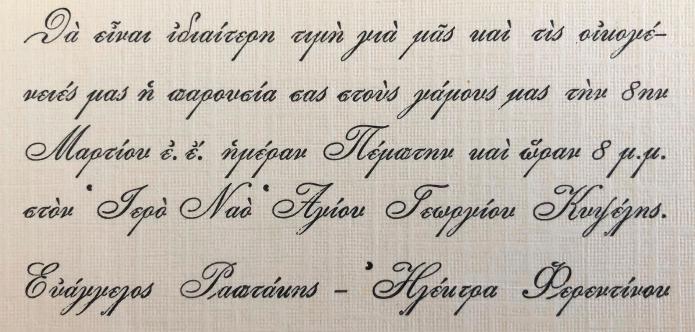 Θὰ εἶναι ἰδιαίτερη τιμὴ γιὰ μᾶς καὶ τὶς οἰκογέ-
νειές μας ἡ παρουσία σας στοὺς γάμους μας τὴν 8ην
Μαρτίου ἐ. ἔ. ἡμέραν Πέμπτην καὶ ὥραν 8 μ.μ.
στὸν Ἱερὸ Ναὸ Ἁγίου Γεωργίου Κυψέλης.
Εὐάγγελος Ραπτάκης - Ἠλέκτρα Φερεντίνου